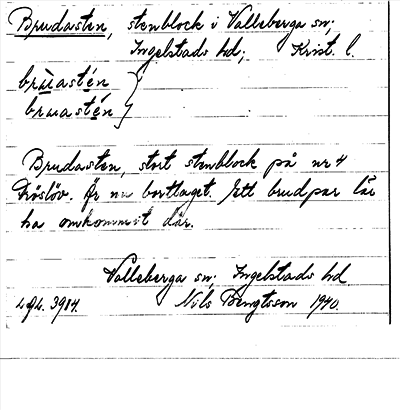 Brudasten, stenblock i Valleberga sn;
Ingelstads hd; Krist. l.
brùastén
bruastén
Brudasten, stort stenblock på nr 4
Fröslöv. Är nu borttaget. Ett brudpar lär
ha omkommit där.
Valleberga sn; Ingelstads hd
3984. Nils Bengtsson 1940.